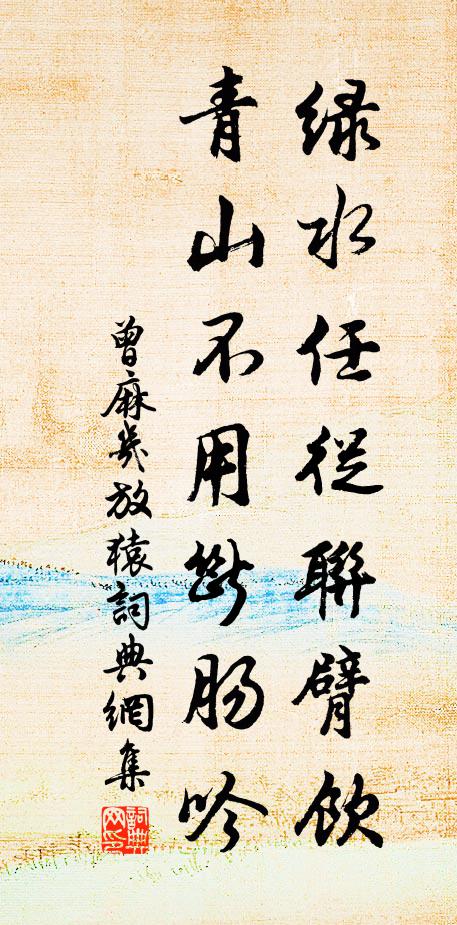 緑水任從聯臂飲
青山不用斷腸吟
曾麻幾放猿詞典網集
詞典
网